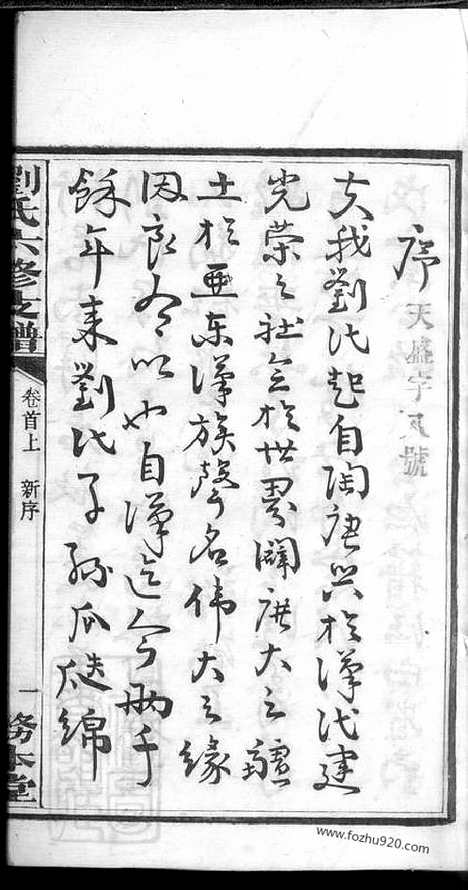 序
天盛字號
夫我劉氏起自陶唐興於漢代建
光榮之社會於世界闢廣大之疆
土於亞東漢族聲名偉大之緣
因良有以也自漢迄今兩千
餘年來劉氏子孫瓜瓞綿
劉氏六修支譜
卷首上 新序
一
務本堂
www.fozhu920.com